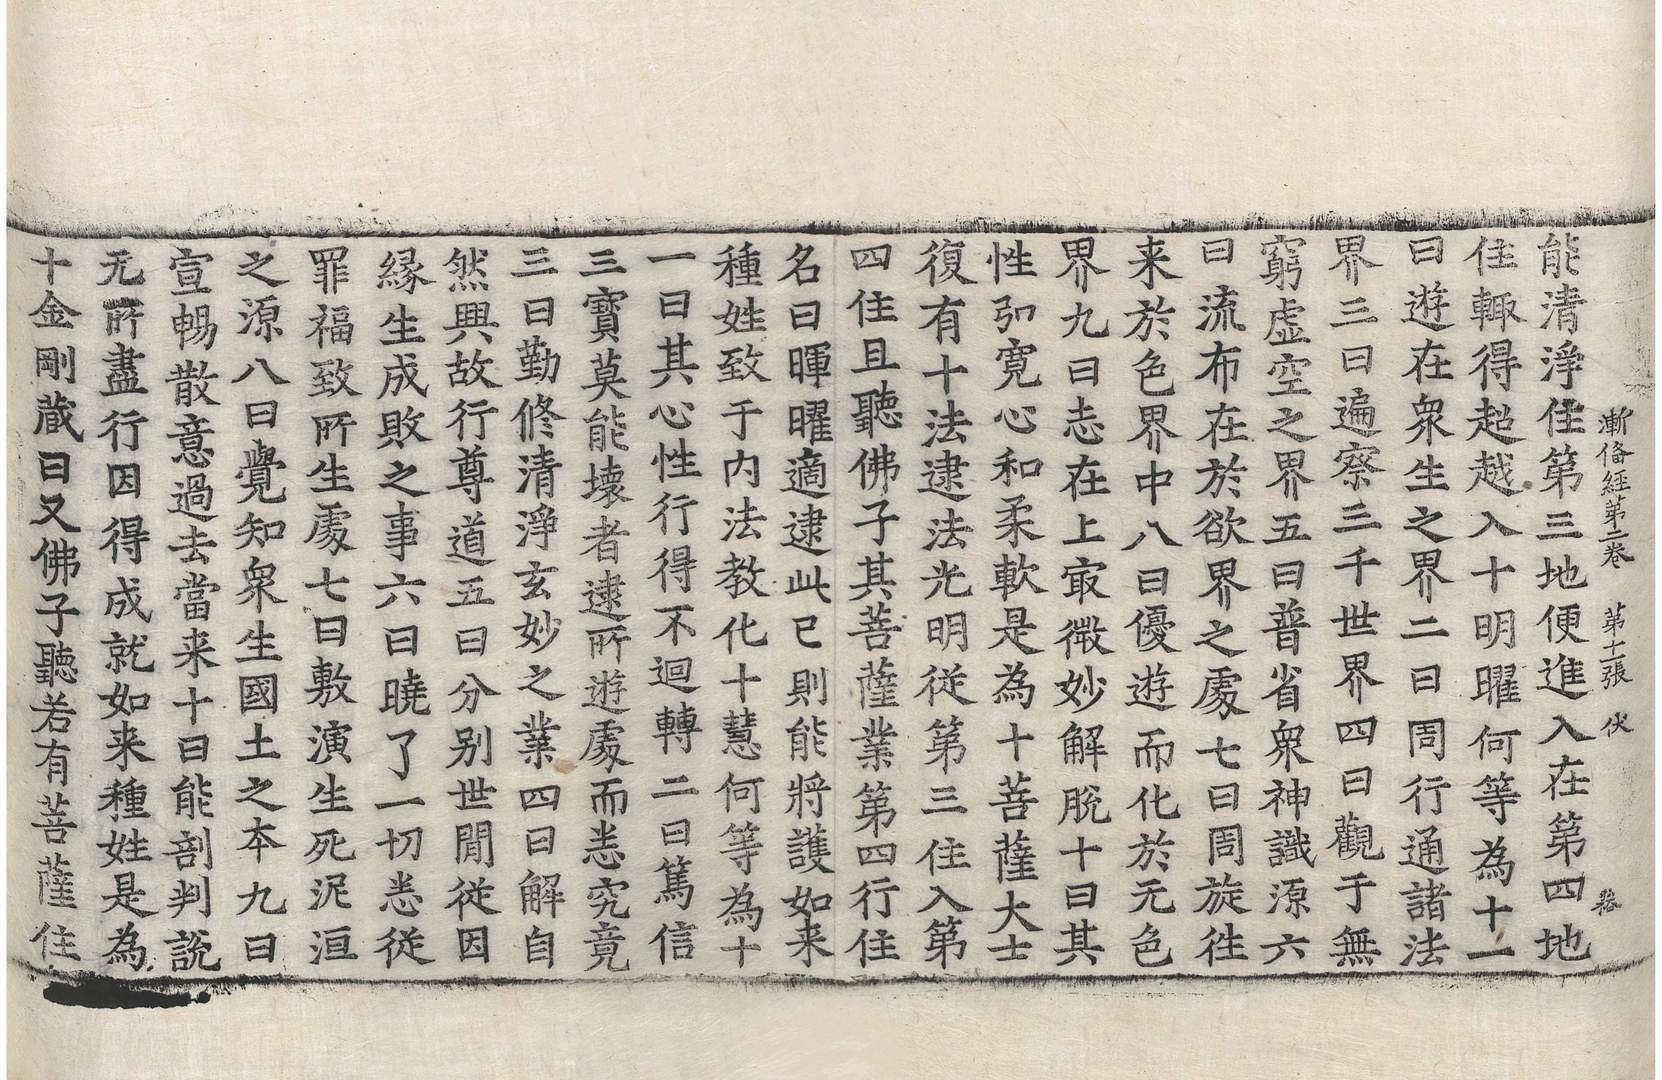 漸俻經第二卷 第十一張 伏
能清淨住第三地便進入在第四地
住輙得超越入十明曜何等為十一
曰遊在衆生之界二曰周行通諸法
界三曰遍察三千世界四曰觀于無
窮虛空之界五曰普省衆神識源六
曰流布在於欲界之處七曰周旋徃
来於色界中八曰優遊而化於无色
界九曰志在上㝡微妙解脫十曰其
性弘寛心和柔軟是為十菩薩大士
復有十法逮法光明従第三住入第
四住且聽佛子其菩薩業第四行住
名曰暉曜適逮此已則能將護如来
種姓致于内法教化十慧何等為十
一曰其心性行得不迴轉二曰篤信
三寶莫能壞者逮所遊處而悉究竟
三曰勤修清淨玄妙之業四曰解自
然興故行尊道五曰分别世間従因
緣生成敗之事六曰曉了一切悉従
罪福致所生處七曰敷演生死泥洹
之源八曰覺知衆生國土之本九曰
宣暢散意過去當来十曰能剖判說
无所盡行因得成就如来種姓是為
十金剛蔵曰又佛子聽若有菩薩住